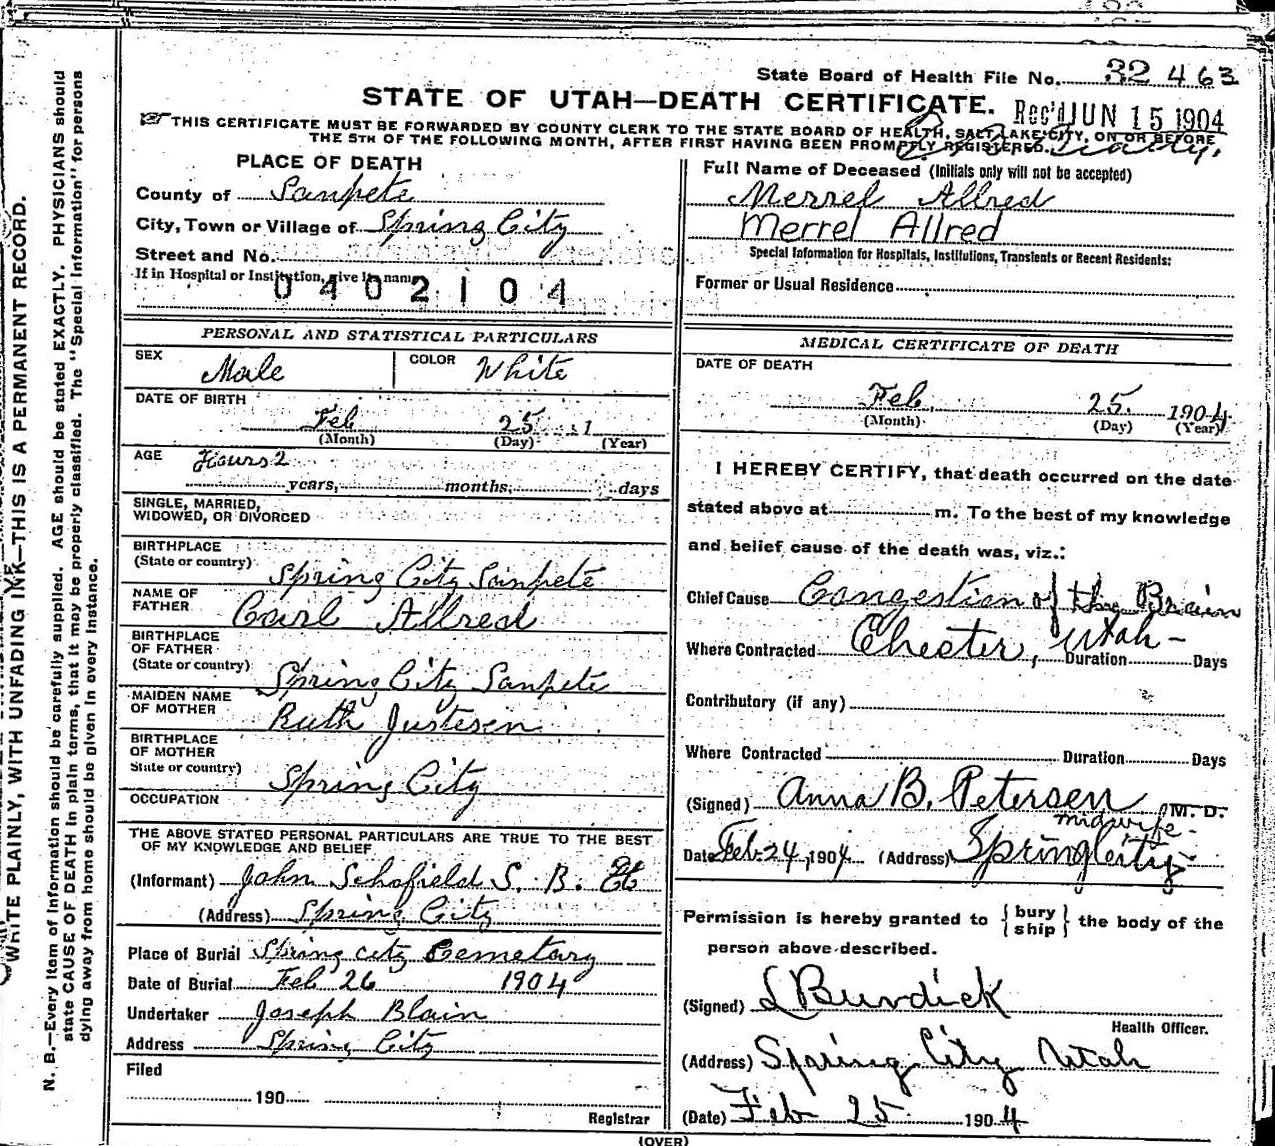 State Board of Health File No. 32463
STATE OF UTAH—DEATH CERTIFICATE.
Rec'd JUN 15 1904
THIS CERTIFICATE MUST BE FORWARDED BY COUNTY CLERK TO THE STATE BOARD OF HEALTH, SALT LAKE CITY, ON OR BEFORE
THE 5TH OF THE FOLLOWING MONTH, AFTER FIRST HAVING BEEN PROMPTLY REGISTERED.
PLACE OF DEATH
County of Sanpete
City, Town or Village of Spring City
Street and No.
If in Hospital or Institution, give its name
0402104
PERSONAL AND STATISTICAL PARTICULARS
SEX Male COLOR White
DATE OF BIRTH
Feb 25 1
(Month) (Day) (Year)
AGE Hours 2
years, months, days
SINGLE, MARRIED,
WIDOWED, OR DIVORCED
BIRTHPLACE
(State or country) Spring City Sanpete
NAME OF
FATHER Carl Allred
BIRTHPLACE
OF FATHER
(State or country) Spring City Sanpete
MAIDEN NAME
OF MOTHER Ruth Justesen
BIRTHPLACE
OF MOTHER
State or country) Spring City
OCCUPATION
THE ABOVE STATED PERSONAL PARTICULARS ARE TRUE TO THE BEST
OF MY KNOWLEDGE AND BELIEF
(Informant) John Schofield S. B.
(Address) Spring City
Place of Burial Spring City Cemetary
Date of Burial Feb 26 1904
Undertaker Joseph Blain
Address Spring City
Filed
190
Registrar
Full Name of Deceased (Initials only will not be accepted)
Merrel Allred
Merrel Allred
Special Information for Hospitals, Institutions, Transients or Recent Residents:
Former or Usual Residence
MEDICAL CERTIFICATE OF DEATH
DATE OF DEATH
Feb. 25. 1904
(Month) (Day) (Year)
I HEREBY CERTIFY, that death occurred on the date
stated above at m. To the best of my knowledge
and belief cause of the death was, viz.:
Chief Cause Congestion of the Brain
Where Contracted Chester, Utah - Duration Days
Contributory (if any)
Where Contracted Duration Days
(Signed) Anna B. Petersen M. D.
midwife.
Date Feb 24, 1904 (Address) Spring City
Permission is hereby granted to {bury ship} the body of the
person above described.
(Signed) L Burdick
Health Officer.
(Address) Spring City Utah
(Date) Feb 25 1904
(OVER)
WRITE PLAINLY, WITH UNFADING INK—THIS IS A PERMANENT RECORD.
N. B.—Every item of information should be carefully supplied. AGE should be stated EXACTLY. PHYSICIANS should
state CAUSE OF DEATH in plain terms, that it may be properly classified. The "Special Information" for persons
dying away from home should be given in every instance.